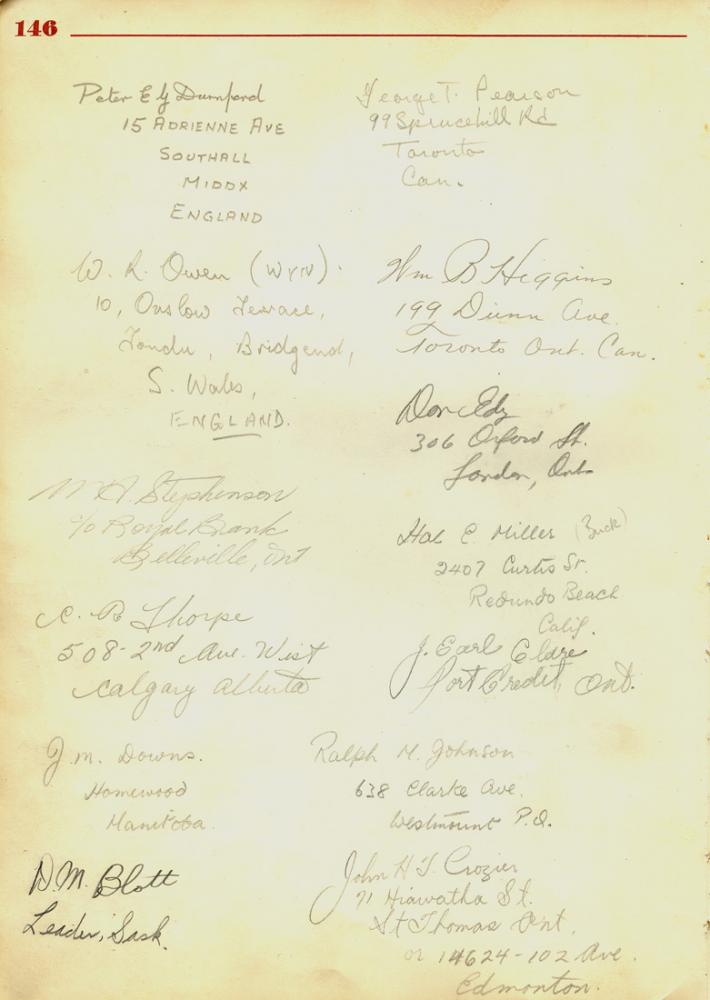 146
Peter E G Durnford
15 ADRIENNE AVE
SOUTHALL
MIDDX
ENGLAND
George T. Pearson
99 Sprucehill Rd
Toronto
Can.
W. R. Owen (WYN).
10, Onslow Terrace,
Tondu, Bridgend,
S. Wales,
ENGLAND.
Wm B Higgins
199 Dunn Ave.
Toronto Ont. Can.
Don
306 Oxford St.
London, Ont
A. Stephenson
c/o Royal Bank
Belleville, Ont
Hal E. Miller (Buck)
2407 Curtis St.
Redondo Beach
Calif.
C. B Thorpe
508-2nd Ave. West
Calgary Alberta
J. Earl Clare
Port Credit, Ont.
J. M. Downs.
Homewood
Manitoba.
Ralph M. Johnson
638 Clarke Ave.
Westmount P.Q.
D. M. Blott
Leader, Sask.
John H T. Crozier
71 Hiawatha St.
St Thomas Ont.
or 14624-102 Ave.
Edmonton.